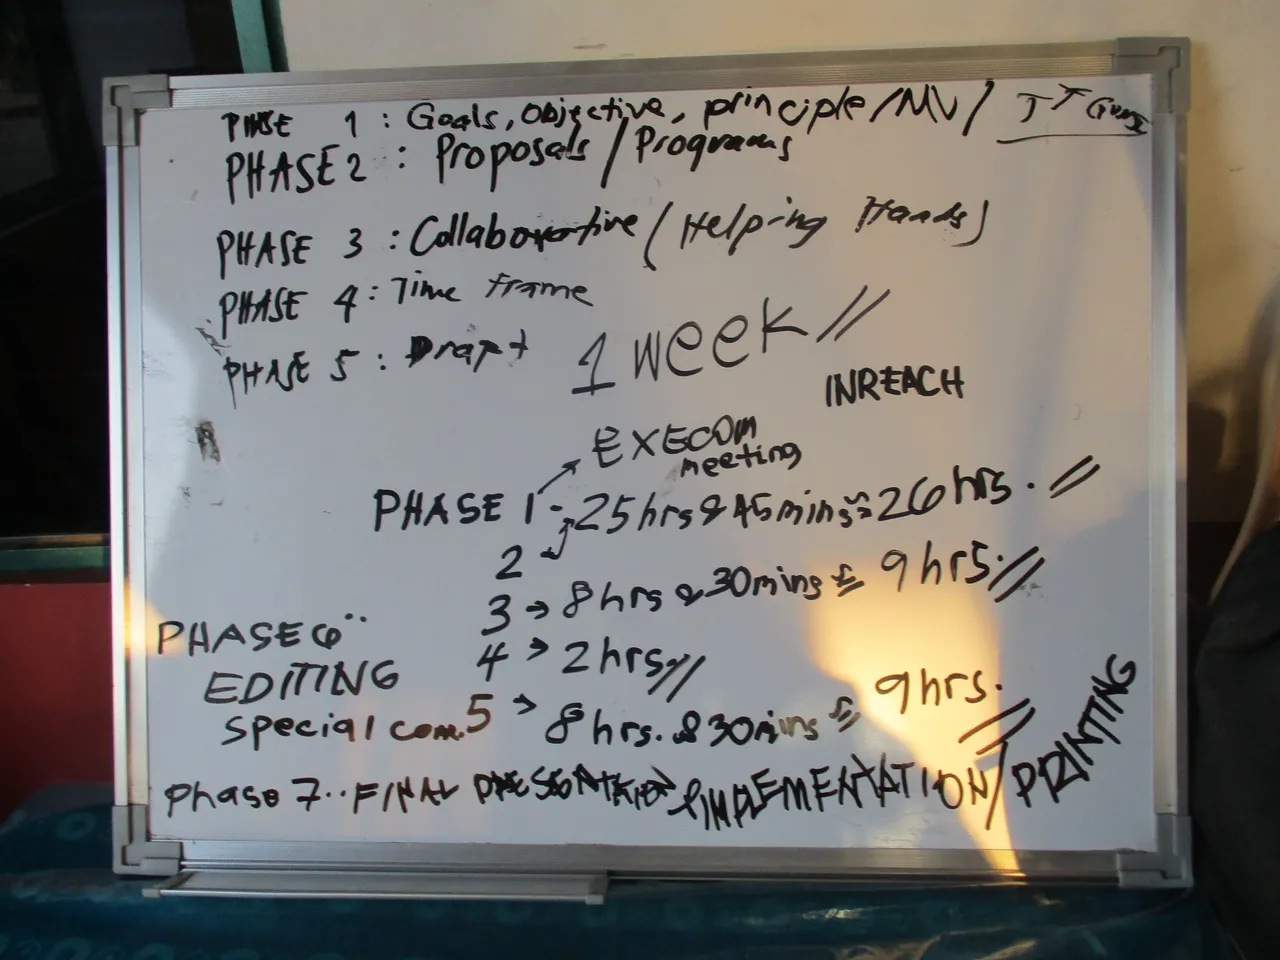 PHASE 1 : Goals, objective, principle/MV/
PHASE 2 : Proposals / Programs
PHASE 3 : Collaborative (Helping Hands)
PHASE 4 : Time frame
PHASE 5 : Drapt
1 week //
INREACH
EXECOM
meeting
PHASE 1 - 25 hrs & 45 mins ≈ 26 hrs. //
2
3 → 8 hrs & 30 mins ≈ 9 hrs. //
PHASE 6 ..
4 → 2 hrs //
EDITING
special com. 5 → 8 hrs. & 30 mins ≈ 9 hrs. //
Phase 7 .. FINAL PRESENTATION IMPLEMENTATION / PRINTING